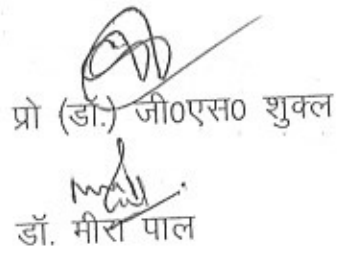 प्रो (डॉ.) जी0एस0 शुक्ल
डॉ. मीरा पाल